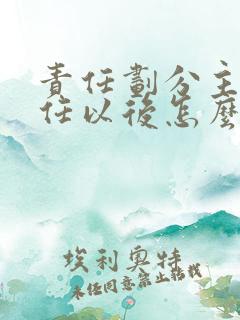 責任劃分主
任以後怎麼
埃利奧特
未經同意禁止轉載